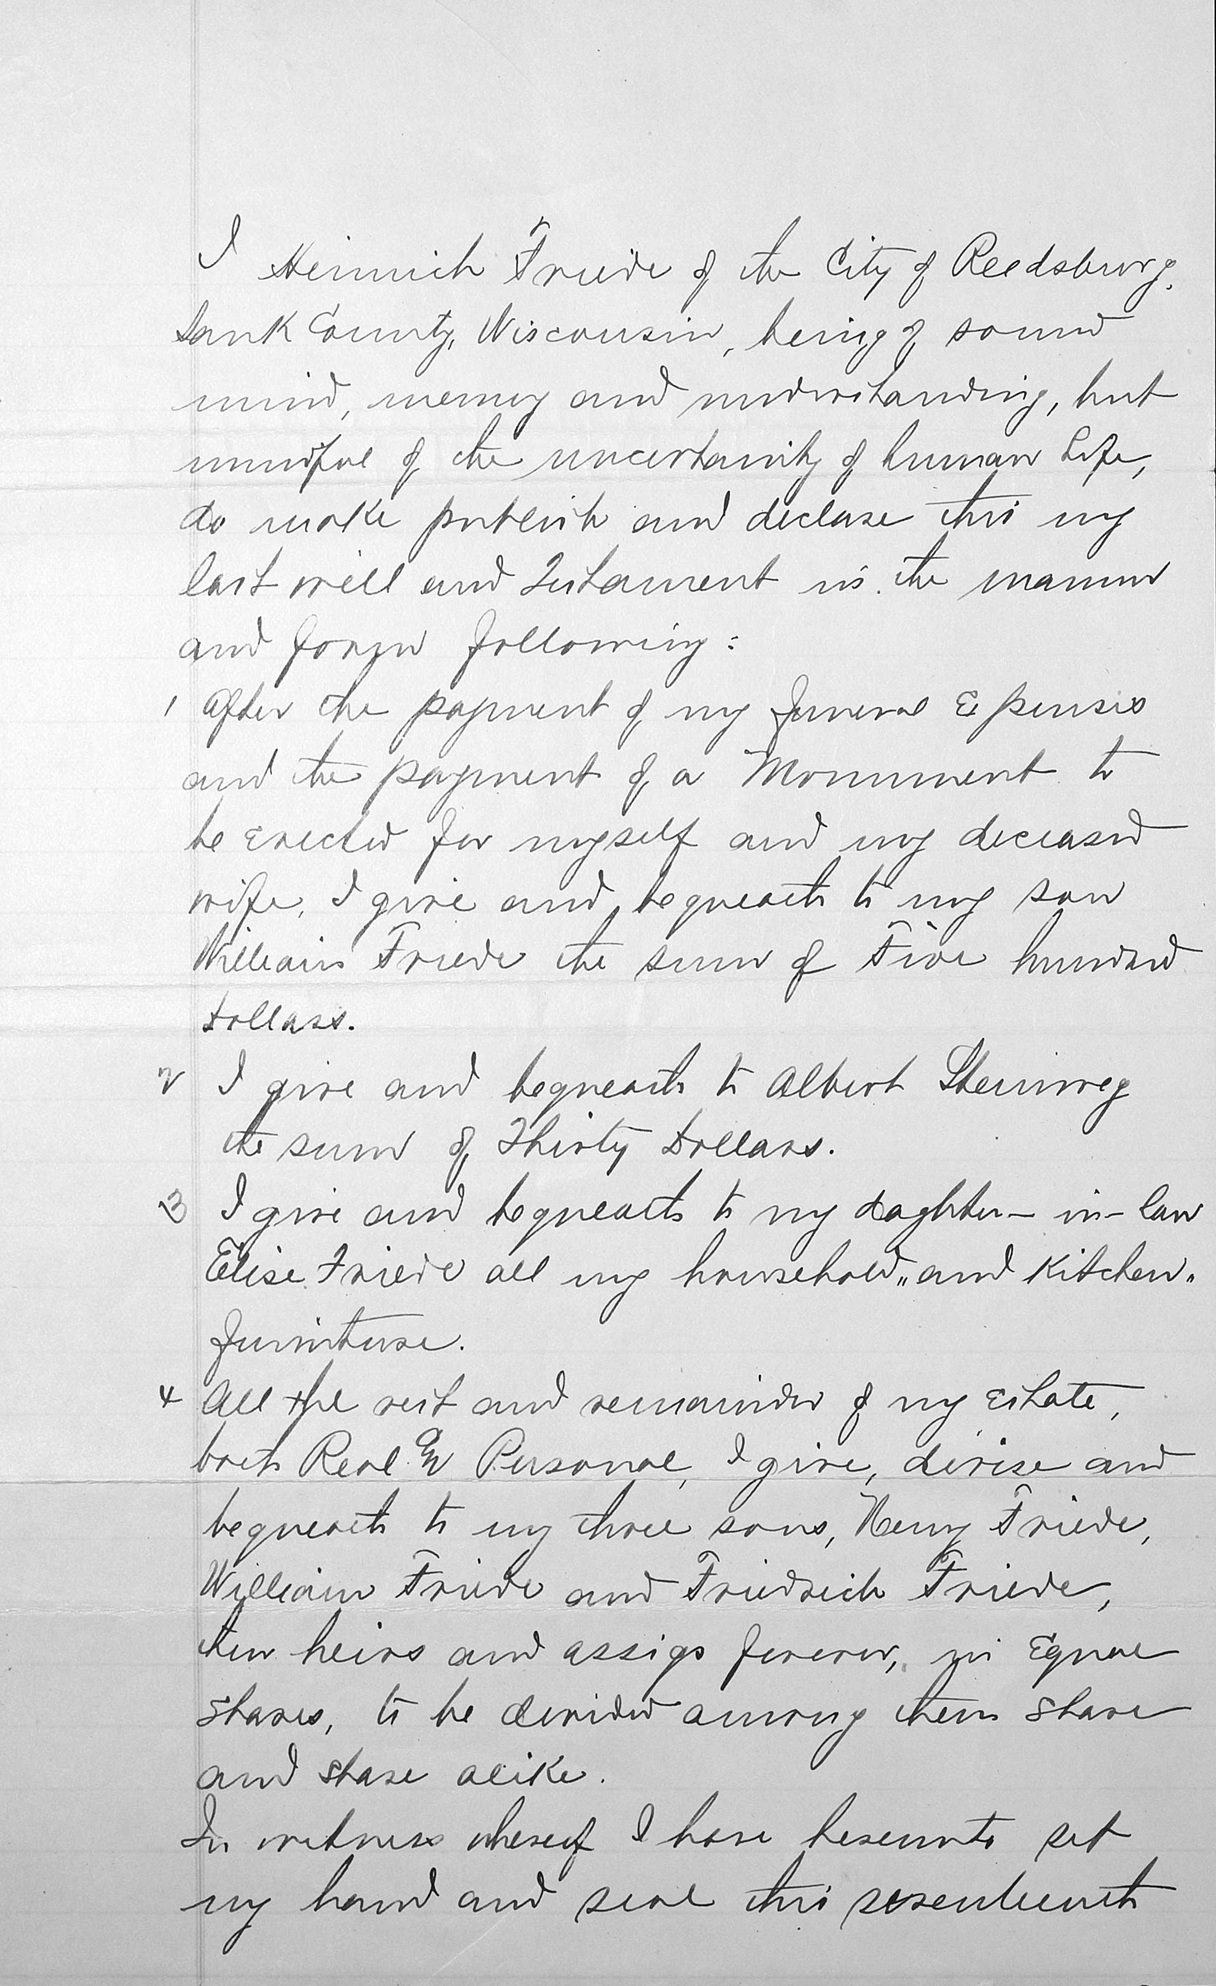 I Heinrich Friede of the City of Reedsburg,
Sauk County, Wisconsin, being of sound
mind, memory and understanding, but
mindful of the uncertainity of human Life,
do make publish and declare this my
last will and Testament in the manner
and form following:
1 After the payment of my funeral Expenses
and the payment of a Monument to
be Erected for myself and my deceased
wife, I give and bequeath to my son
William Friede the sum of Five hundred
Dollars.
2 I give and bequeath to Albert Steinweg
the sum of Thirty Dollars.
3 I give and bequeath to my daghter-in-law
Elise Friede all my household„ and Kitchen„
furniture.
4 All the rest and remainder of my Estate,
both Real & Personal, I give, devise and
bequeath to my three sons, Henry Friede,
William Friede and Friedrich Friede,
their heirs and assigs forever, in Equal
shares, to be devided among them share
and share alike.
In witness whereof I have hereunto set
my hand and seal this seventeenth